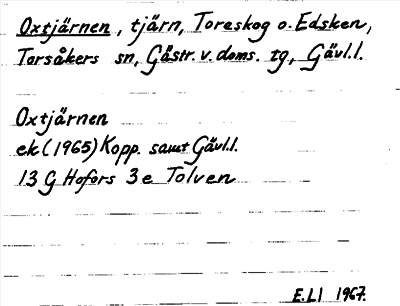 Oxtjärnen, tjärn, Toreskog o. Edsken,
Torsåkers sn, Gästr. v. doms. tg, Gävl.l.
Oxtjärnen
ek (1965) Kopp. samt Gävl.l.
13 G Hofors 3 e Tolven
E.Ll 1967.